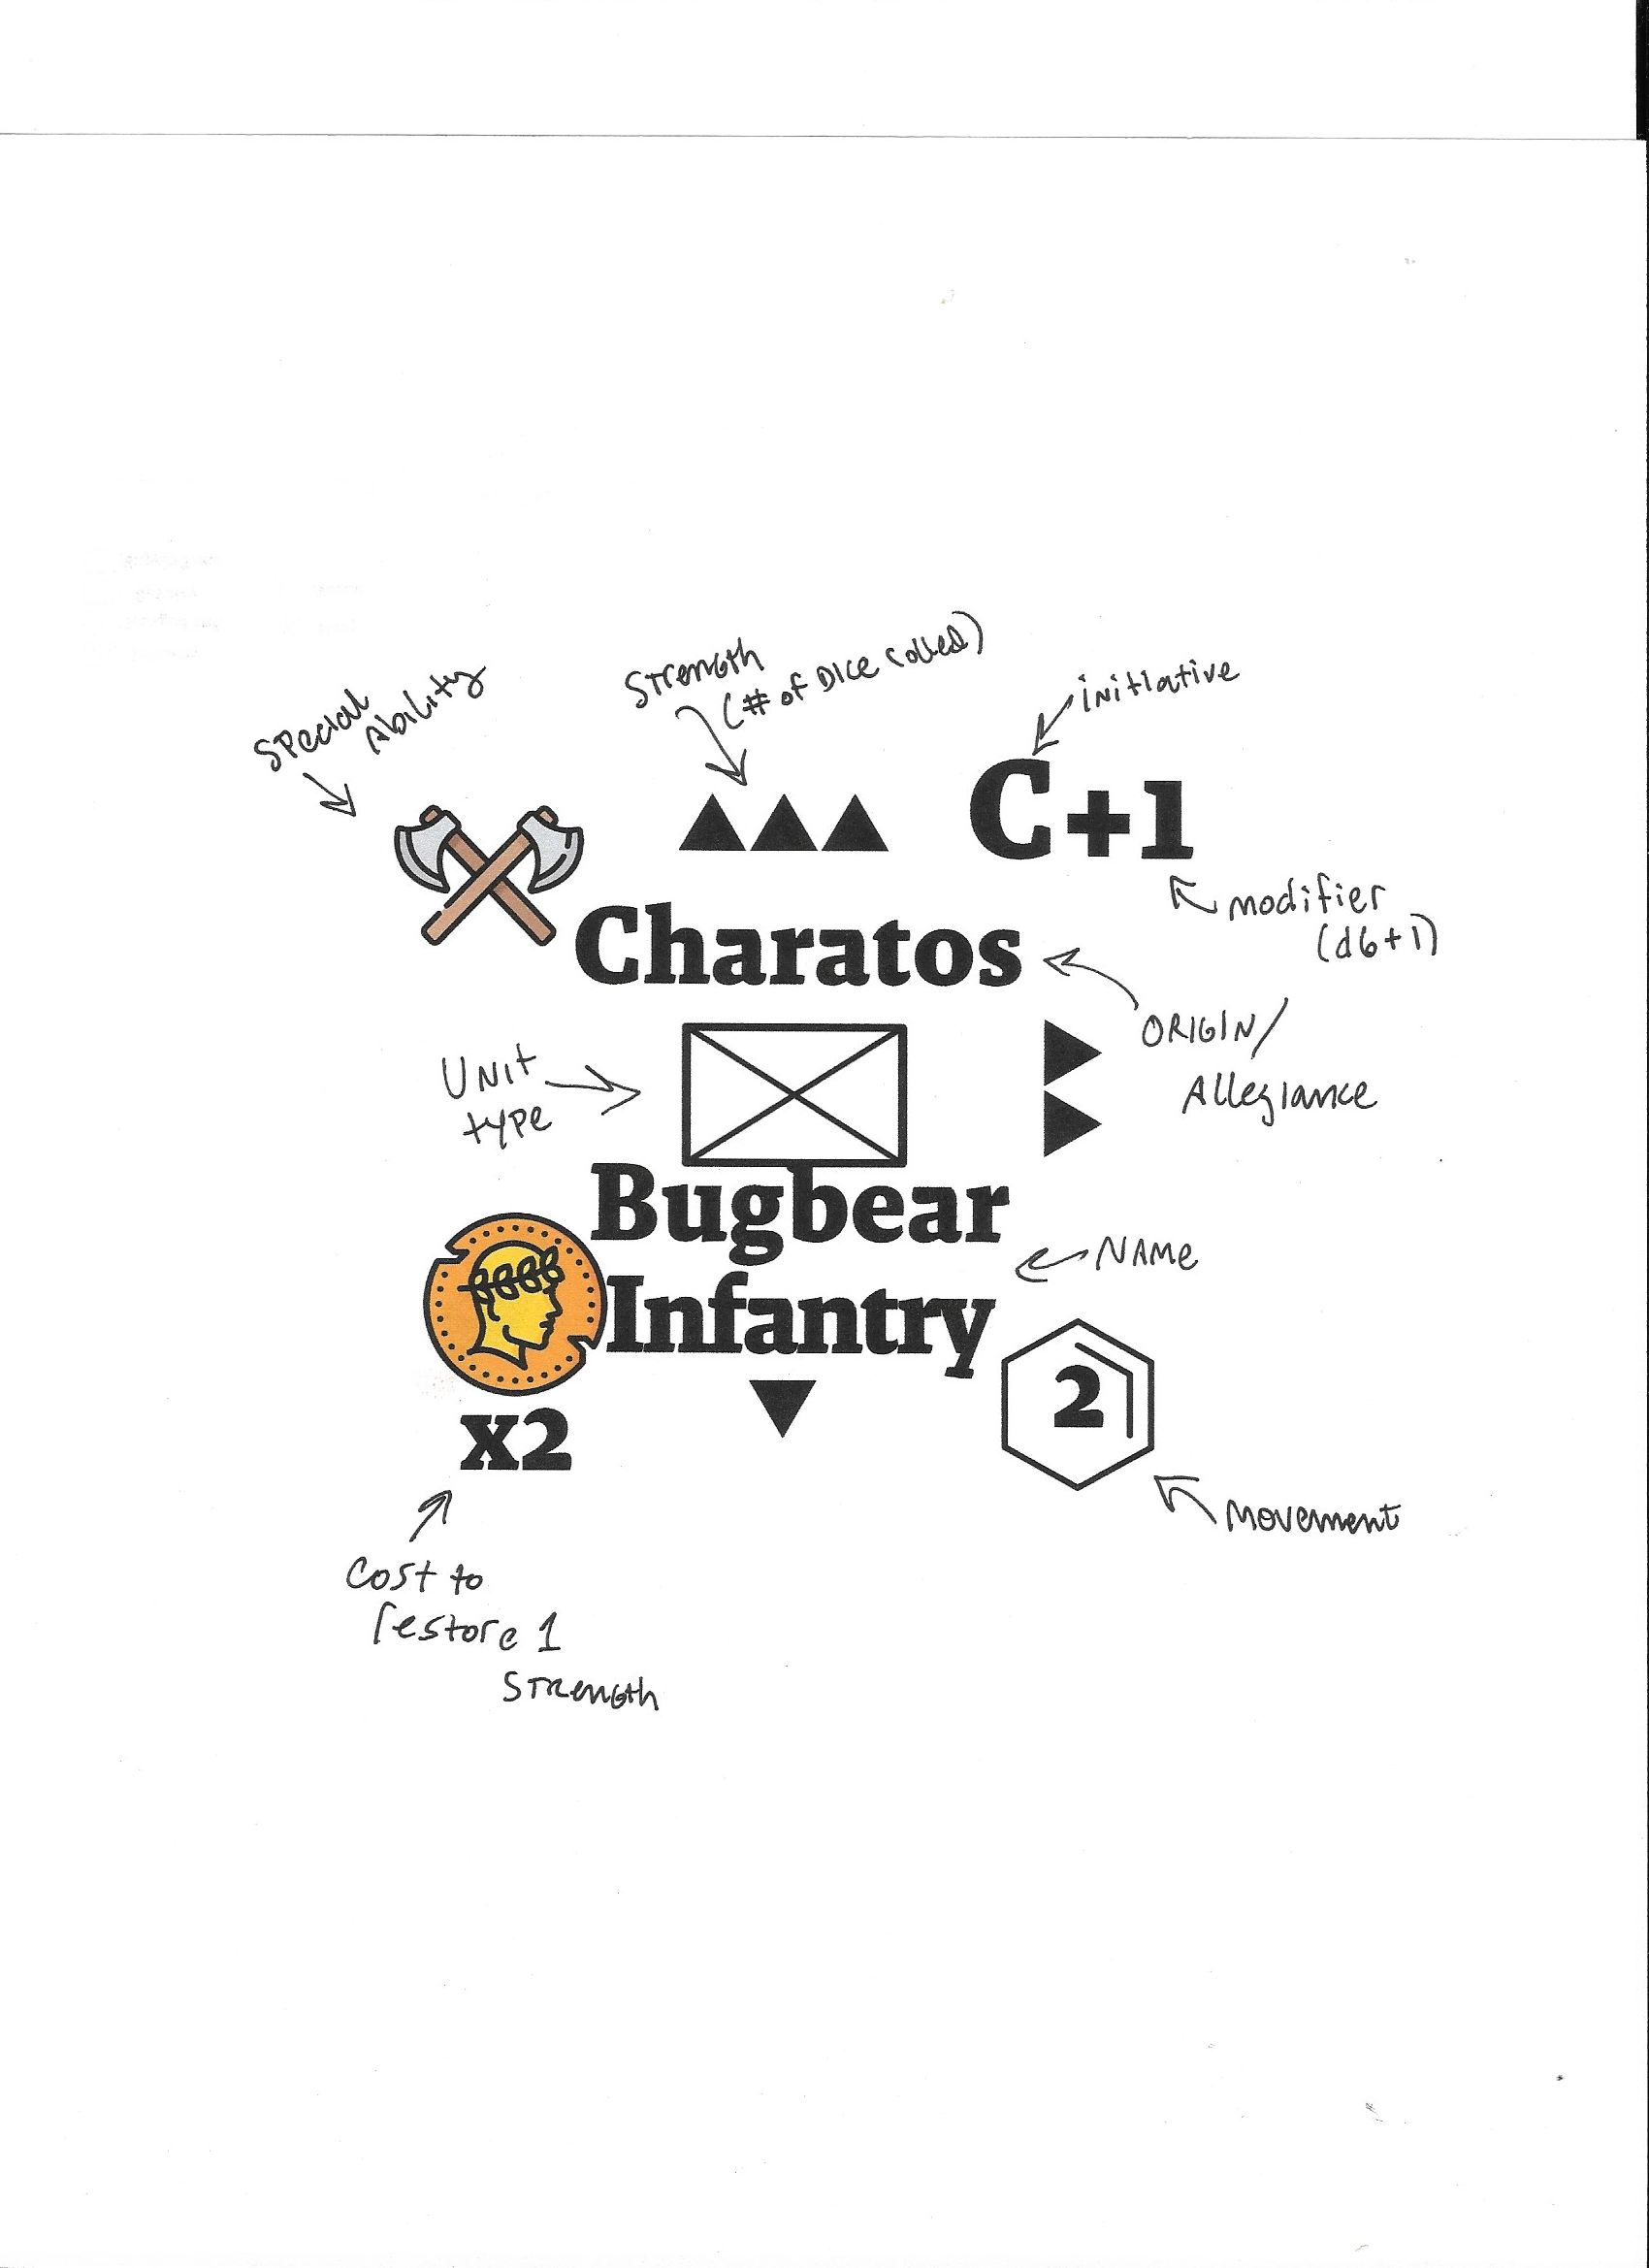 Special
Ability
Strength
(# of Dice rolled)
initiative
C+1
modifier
(d6+1)
Charatos
ORIGIN/
Allegiance
UNit
type
Bugbear
Infantry
NAMe
2
x2
Movement
Cost to
restore 1
Strength